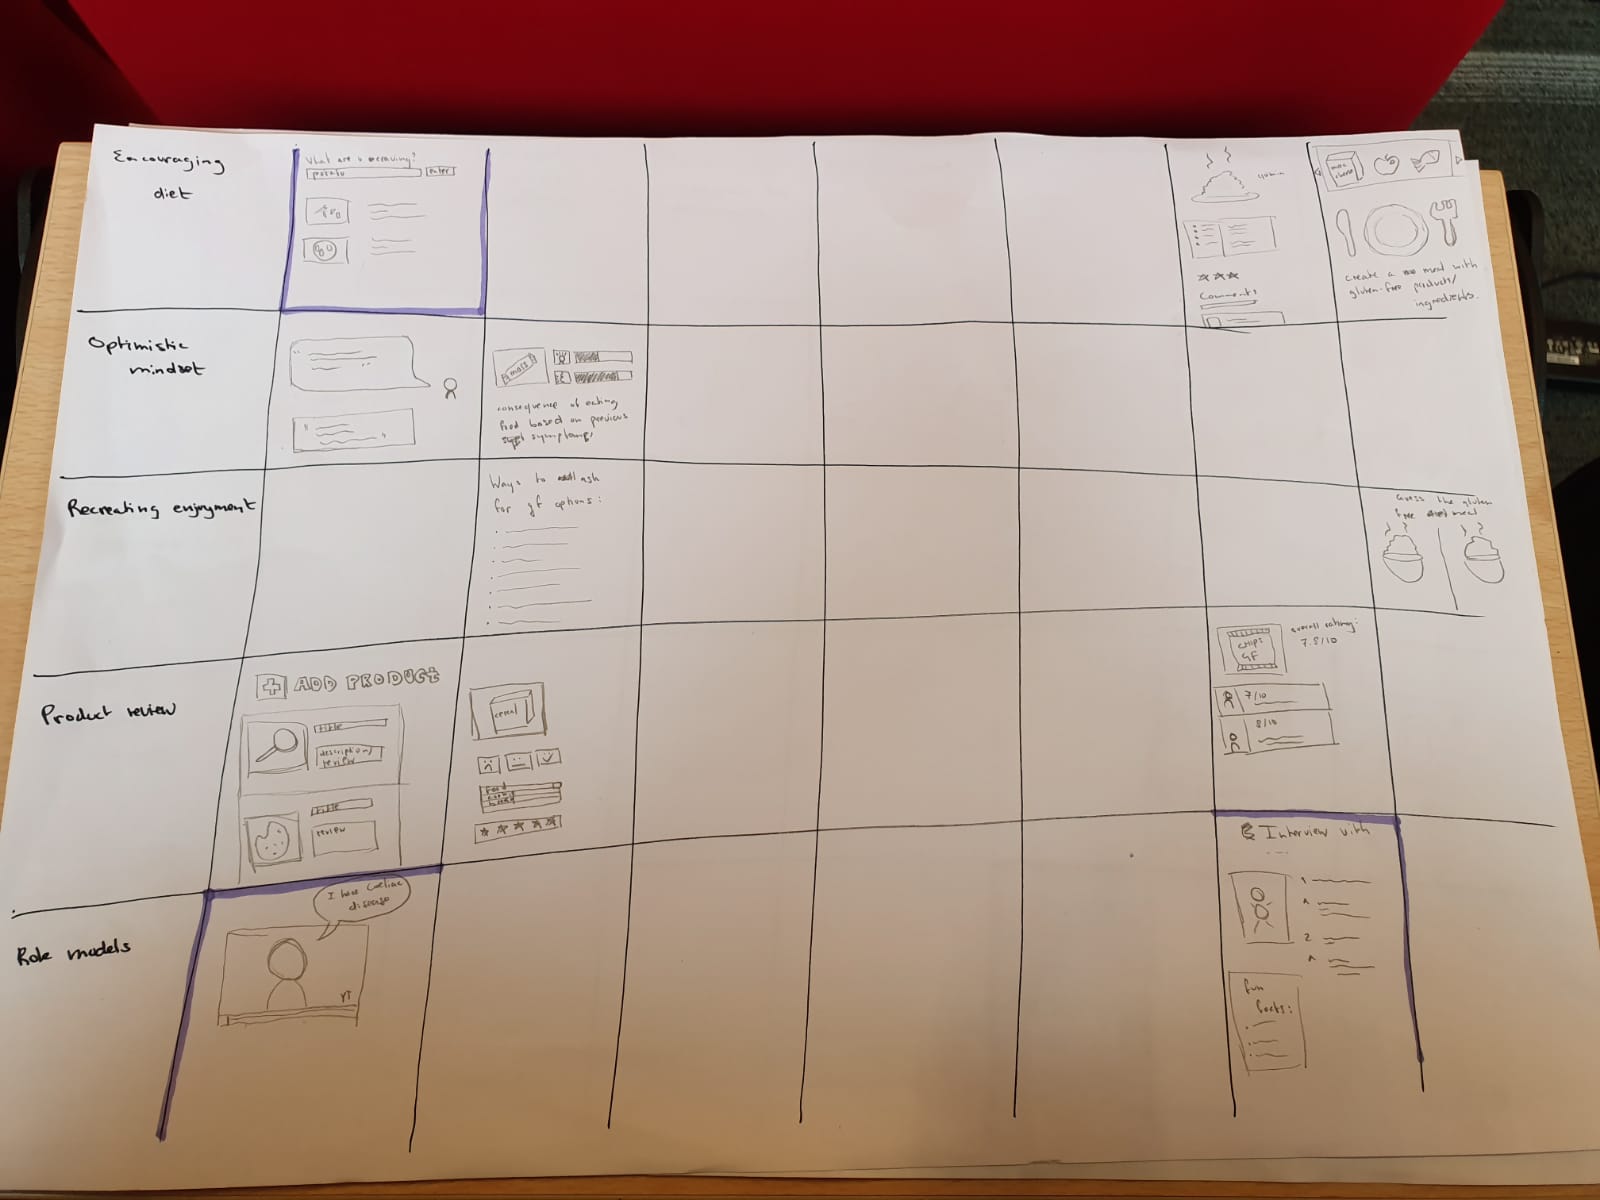 Encouraging
diet
What are u craving?
potato
enter
Comments
create a meal with
gluten-free products/
ingredients.
Optimistic
mindset
mars
consequence of eating
food based on previous
symptoms
Recreating enjoyment
Ways to ask
for gf options:
Guess the gluten
free meal
Product review
ADD PRODUCT
title
description/
review
title
review
cereal
food
CHIPS
GF
overall rating:
7.8/10
7/10
8/10
Role models
I have Coeliac
disease
YT
Interview with
1
A
2
A
fun
facts: